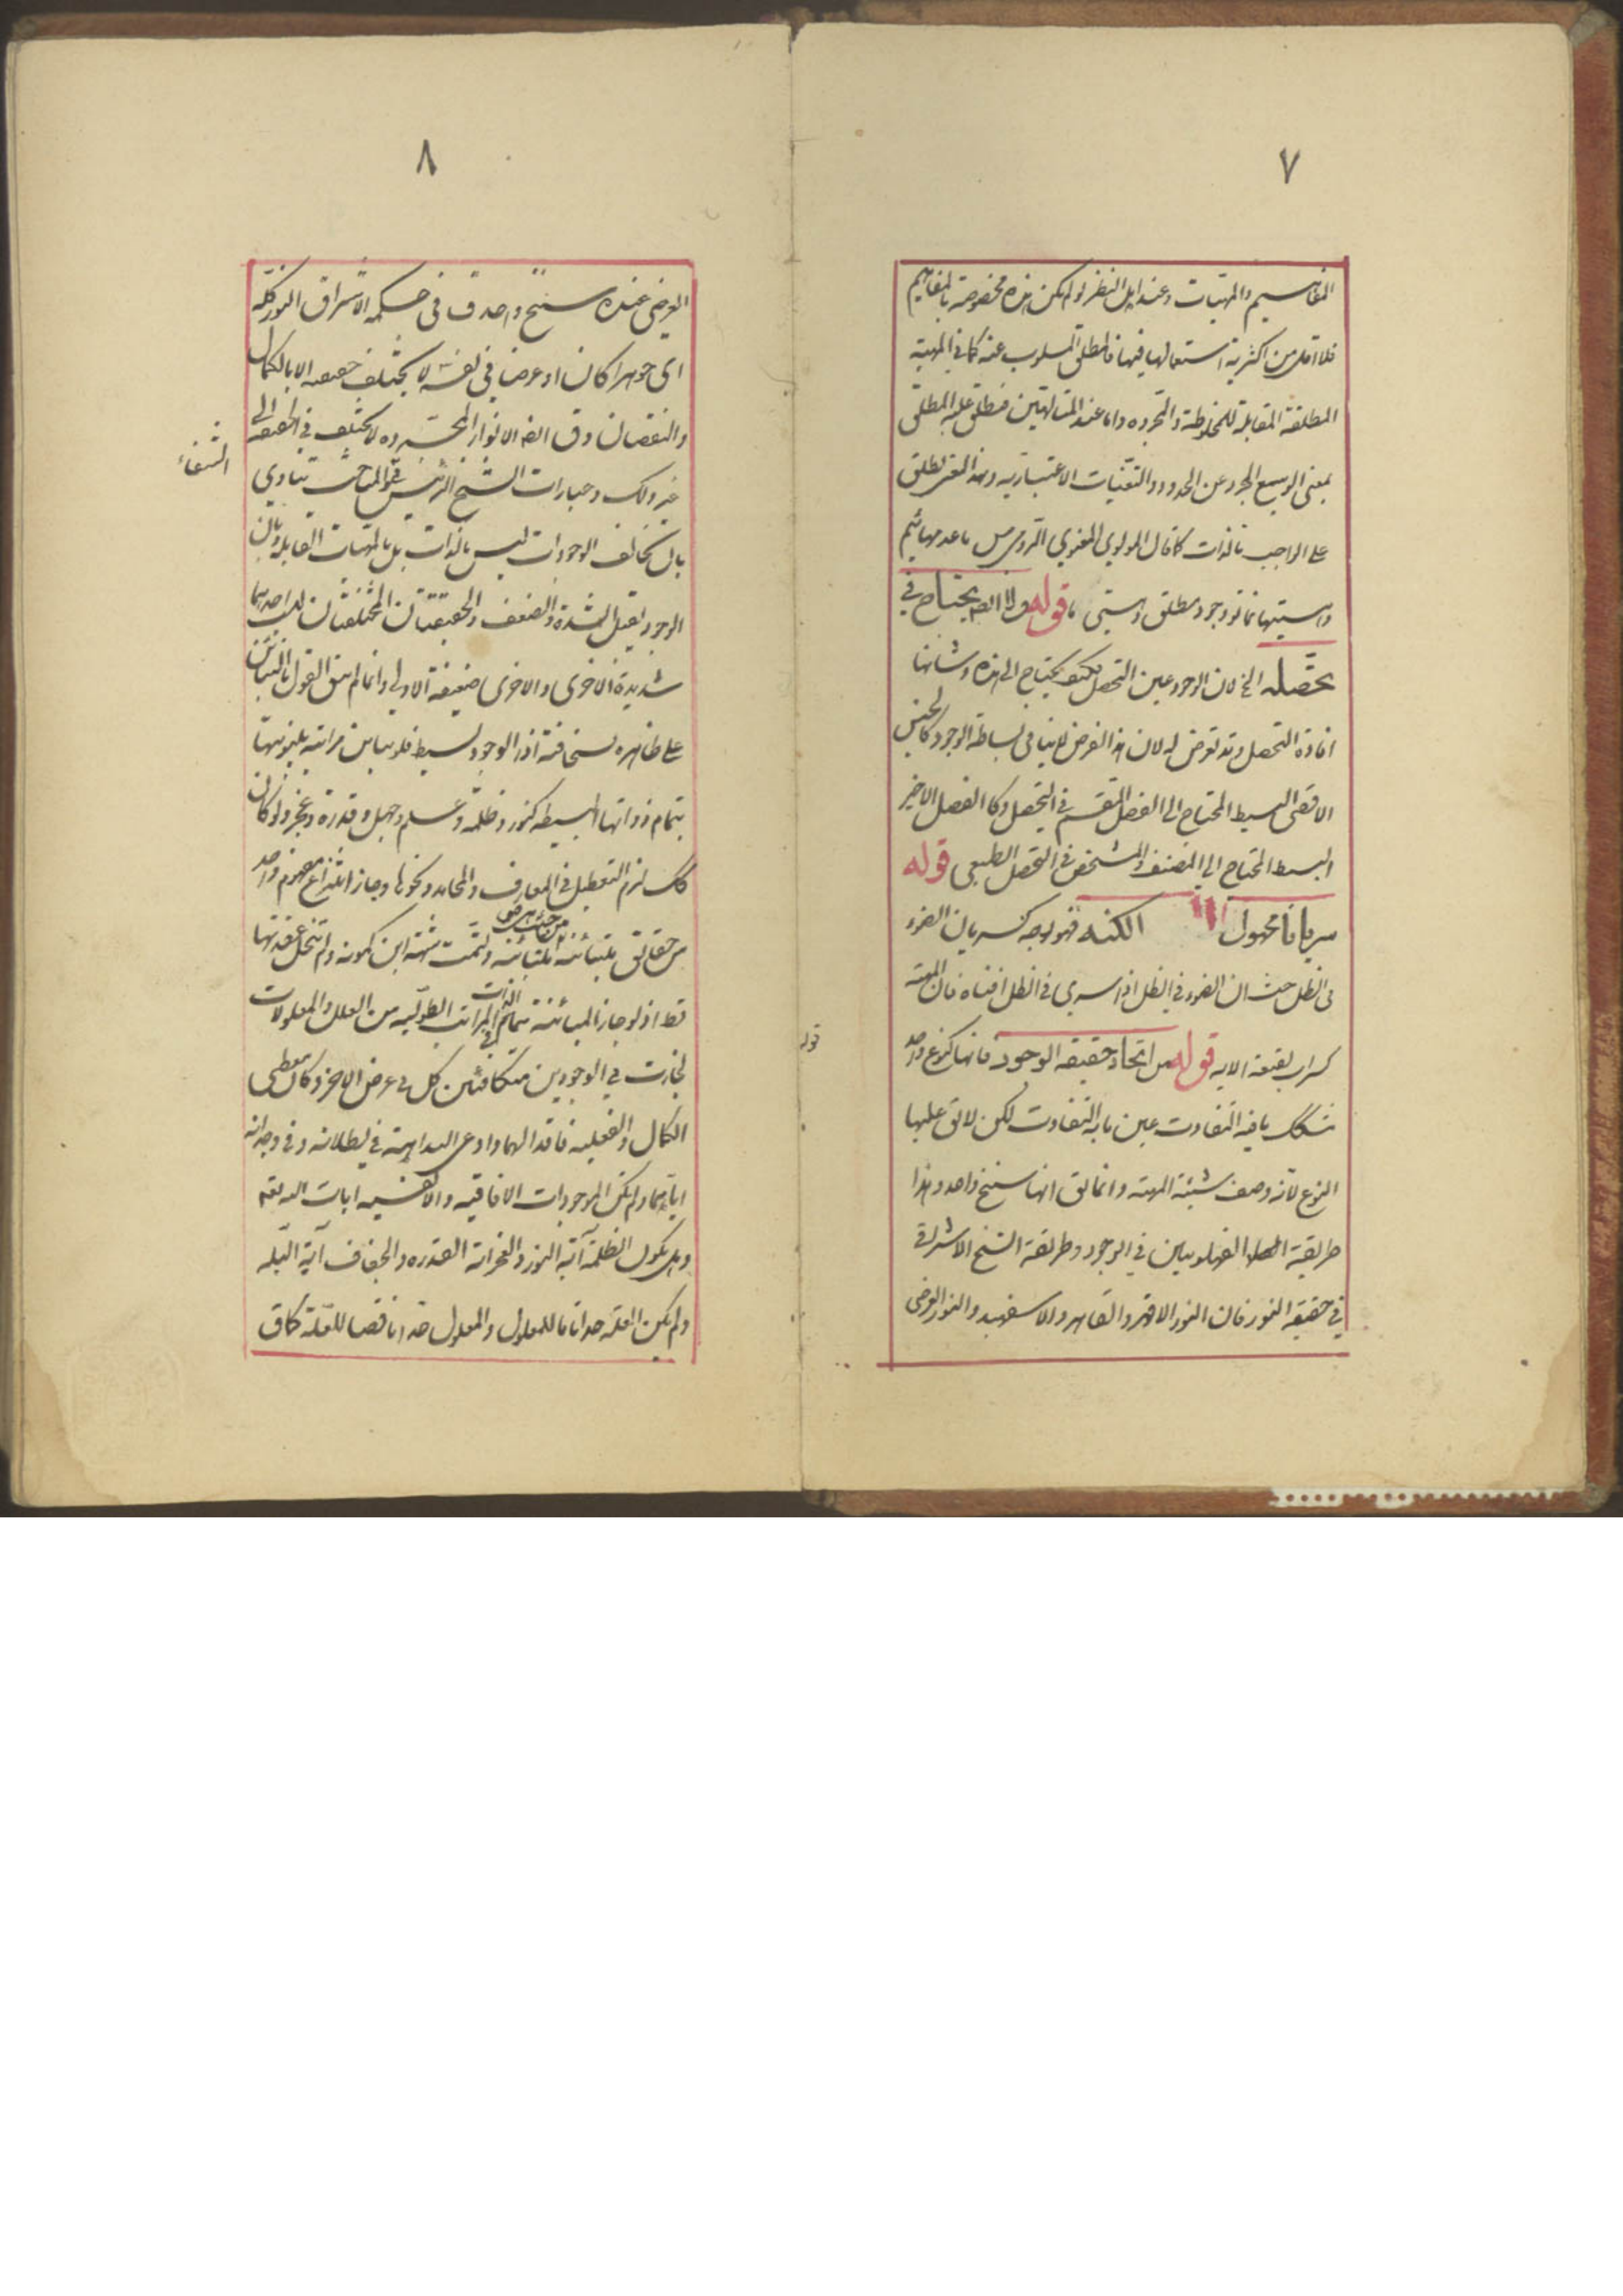 ٧
المفاهيم والمهيات وعند اهل النظر لو لم يكن هذه مخصوصة بالمفاهيم
فلا اقل من اكثرية استعمالها فيها فالمطلق المسلوب عنه كما في المهية
المطلقة المقابلة للمخلوطة والمجردة واما عند المتالهين فيطلق عليه المطلق
بمعنى الوسيع المجرد عن الحدود والتعينات الاعتبارية وهذا المعنى يطلق
على الواجب بالذات كما قال المولوي المعنوي الرومي س ما عدمهائيم
وهستيها نما تو وجود مطلق وهستى ما قوله ولا ايضا يحتاج في
تحصله الخ لان الوجود عين التحصل فكيف يحتاج الى هذه وشانها
افادة التحصل وقد تعرض له لان هذا الفرض لا ينافي بساطة الوجود كالجنس
الاقصى البسيط المحتاج الى الفصل المقسم في التحصل وكالفصل الاخير
البسيط المحتاج الى المصنف والمشخص في التحصل الطبيعي قوله
سريانا مجهول الكنه فهو بوجه كسريان الضوء
في الظل حيث ان الضوء في الظل اذا سرى في الظل افناه فان المهية
كسراب بقيعة الاية قوله من اتحاد حقيقة الوجود فانها كنوع واحد
مشكك ما فيه التفاوت عين ما به التفاوت لكن لا يق عليها
النوع لانه وصف شيئية المهية وانما يق انها سنخ واحد وهذا
طريقة الفهلويين في الوجود وطريقة الشيخ الاشراقي
في حقيقة النور فان النور الاقهر والقاهر والاسفهبد والنور العرضي
قوله
٨
العرضي عنده سنخ واحد ق في حكمة الاشراق النور كله
اى جوهرا كان او عرضا في نفسه لا يختلف حقيقته الا بالكمال
والنقصان وق ايضا الانوار المجردة لا تختلف في الحقيقة الى
غير ذلك وعبارات الشيخ الرئيس في المباحث تنادي
الشفاء
بان تخالف الوجودات ليس بالذات بل بالمهيات القابلة وبان
الوجود يقبل الشدة والضعف والحقيقتان المختلفتان ليست احديهما
شديدة الاخرى والاخرى ضعيفة الاولى وانما لم يبق القول بالتباين
على ظاهره لسخافته اذ الوجود بسيط فلو يباين مراتبه بينونتها
بتمام ذواتها البسيطة كنور وظلمة وعلم وجهل وقدرة وعجز ولو كان
كك لزم التعطيل في المعارف والمحامد ونحوها وجاز انتزاع مفهوم واحد
من حقايق متباينة من حيث هي متباينة وتمت شبهة ابن كمونه ولم تنحل عقدتها
قط اذ لو جاز المباينة بتمام الذات في المراتب الطولية من العلل والمعلولات
لجازت في الوجودين متكافئين كل في عرض الاخر وكان معطى
الكمال والفعلية فاقدا لهما وادعى البداهة في بطلانه وفي وجدانه
اياهما ولم يكن الموجودات الافاقية والانفسية ايات الله تعه
وهل يكون الظلمة آية النور والعجز آية القدرة والجفاف آية البلة
ولم يكن العلة حدا تاما للمعلول والمعلول حدا ناقصا للعلة كما ق